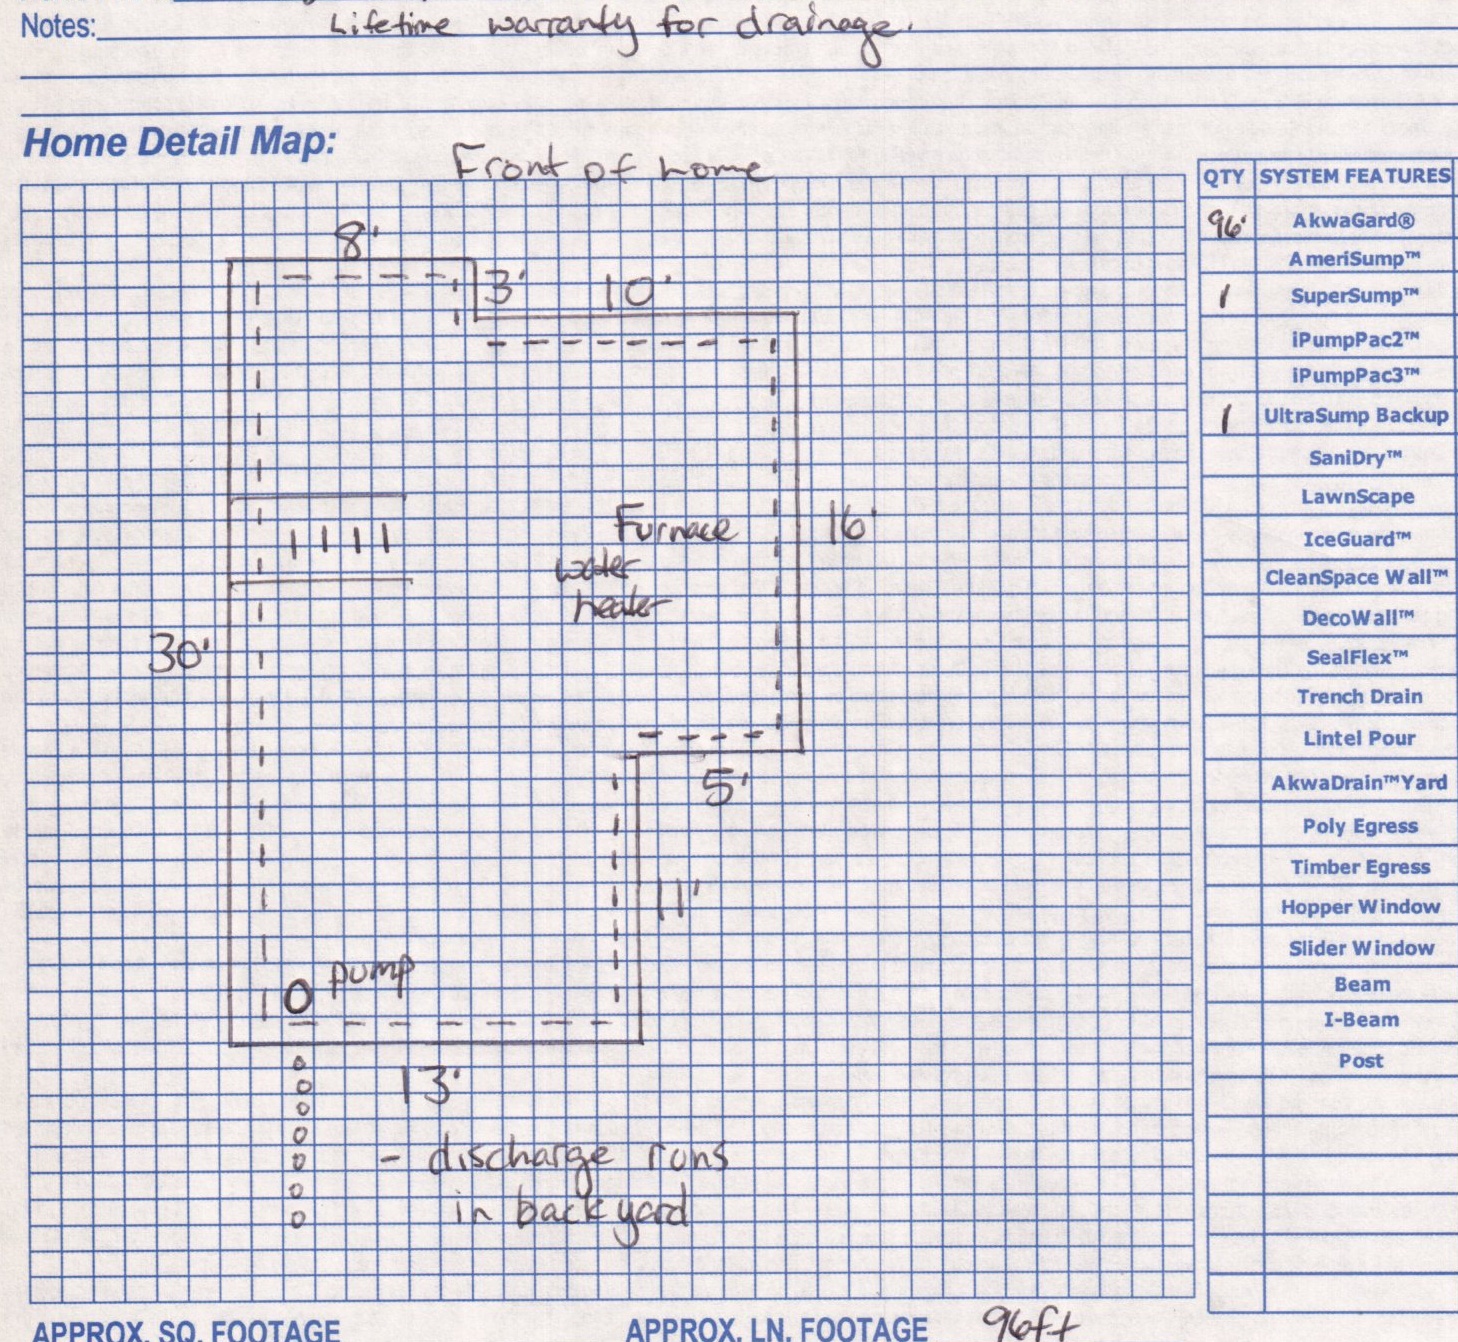 Notes: Lifetime warranty for drainage.
Home Detail Map:
Front of home
8'
3'
10'
Furnace
water
heater
16'
30'
5'
11'
pump
13'
- discharge runs
in back yard
QTY SYSTEM FEATURES
96' AkwaGard®
AmeriSump™
1 SuperSump™
iPumpPac2™
iPumpPac3™
1 UltraSump Backup
SaniDry™
LawnScape
IceGuard™
CleanSpace Wall™
DecoWall™
SealFlex™
Trench Drain
Lintel Pour
AkwaDrain™Yard
Poly Egress
Timber Egress
Hopper Window
Slider Window
Beam
I-Beam
Post
APPROX. SQ. FOOTAGE APPROX. LN. FOOTAGE 96ft